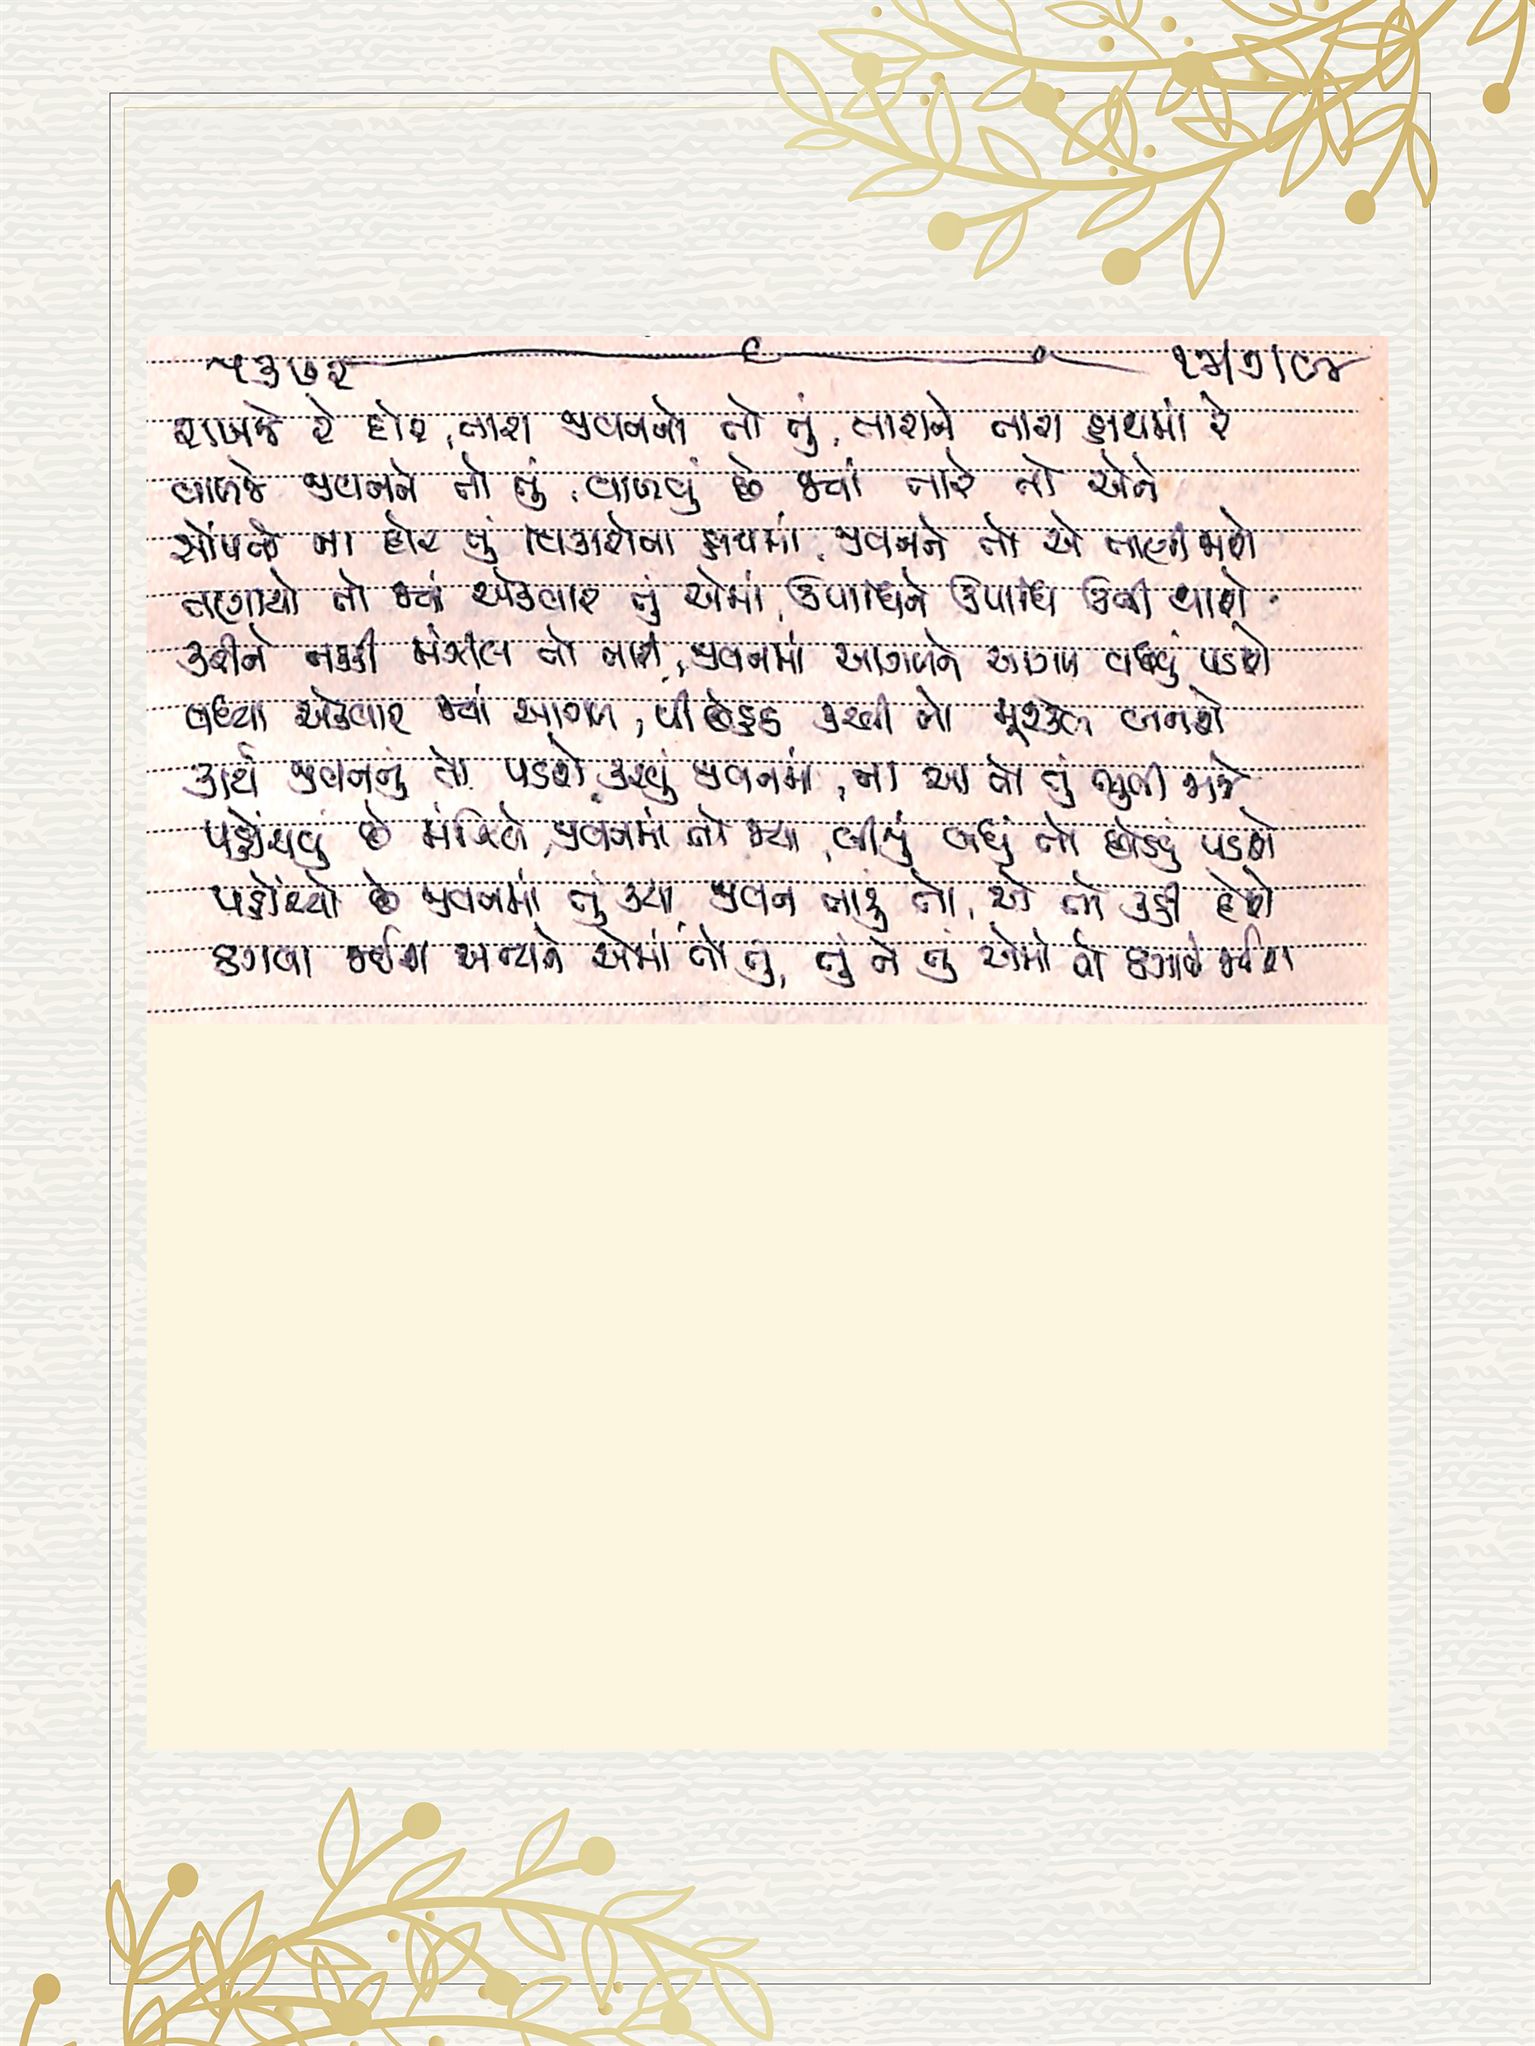 ૫૩૭૨ ૨૩/૭/૯૪
રાખજે રે દોર, તારા જીવનનો તો તું, તારાને તારા હાથમાં રે
વાળજે જીવનને તો તું, વાળવું છે જ્યાં તારે તો એને
સોંપજે ના દોર તું વિકારોના હાથમાં, જીવનને તો એ તાણી જાશે
તણાયો તો જ્યાં એકવાર તું એમાં, ઉપાધિને ઉપાધિ ઊભી થાશે
કરીને નક્કી મંઝીલ તો તારી, જીવનમાં આગળને આગળ વધવું પડશે
વધ્યા એકવાર જ્યાં આગળ, પીછેહઠ કરવી તો મુશ્કેલ બનશે
કાર્ય જીવનનું તો પડશે કરવું જીવનમાં, ના આ તો તું ભુલી જાજે
પહોંચવું છે મંઝિલે, જીવનમાં તો જ્યાં, બીજું બધું તો છોડવું પડશે
પહોંચ્યો છે જીવનમાં તું ક્યાં, જીવન તારું તો, એ તો કહી દેશે
ઠગવા જઈશ અન્યને એમાં તો તું, તું ને તું એમાં તો ઠગાતો જઈશ